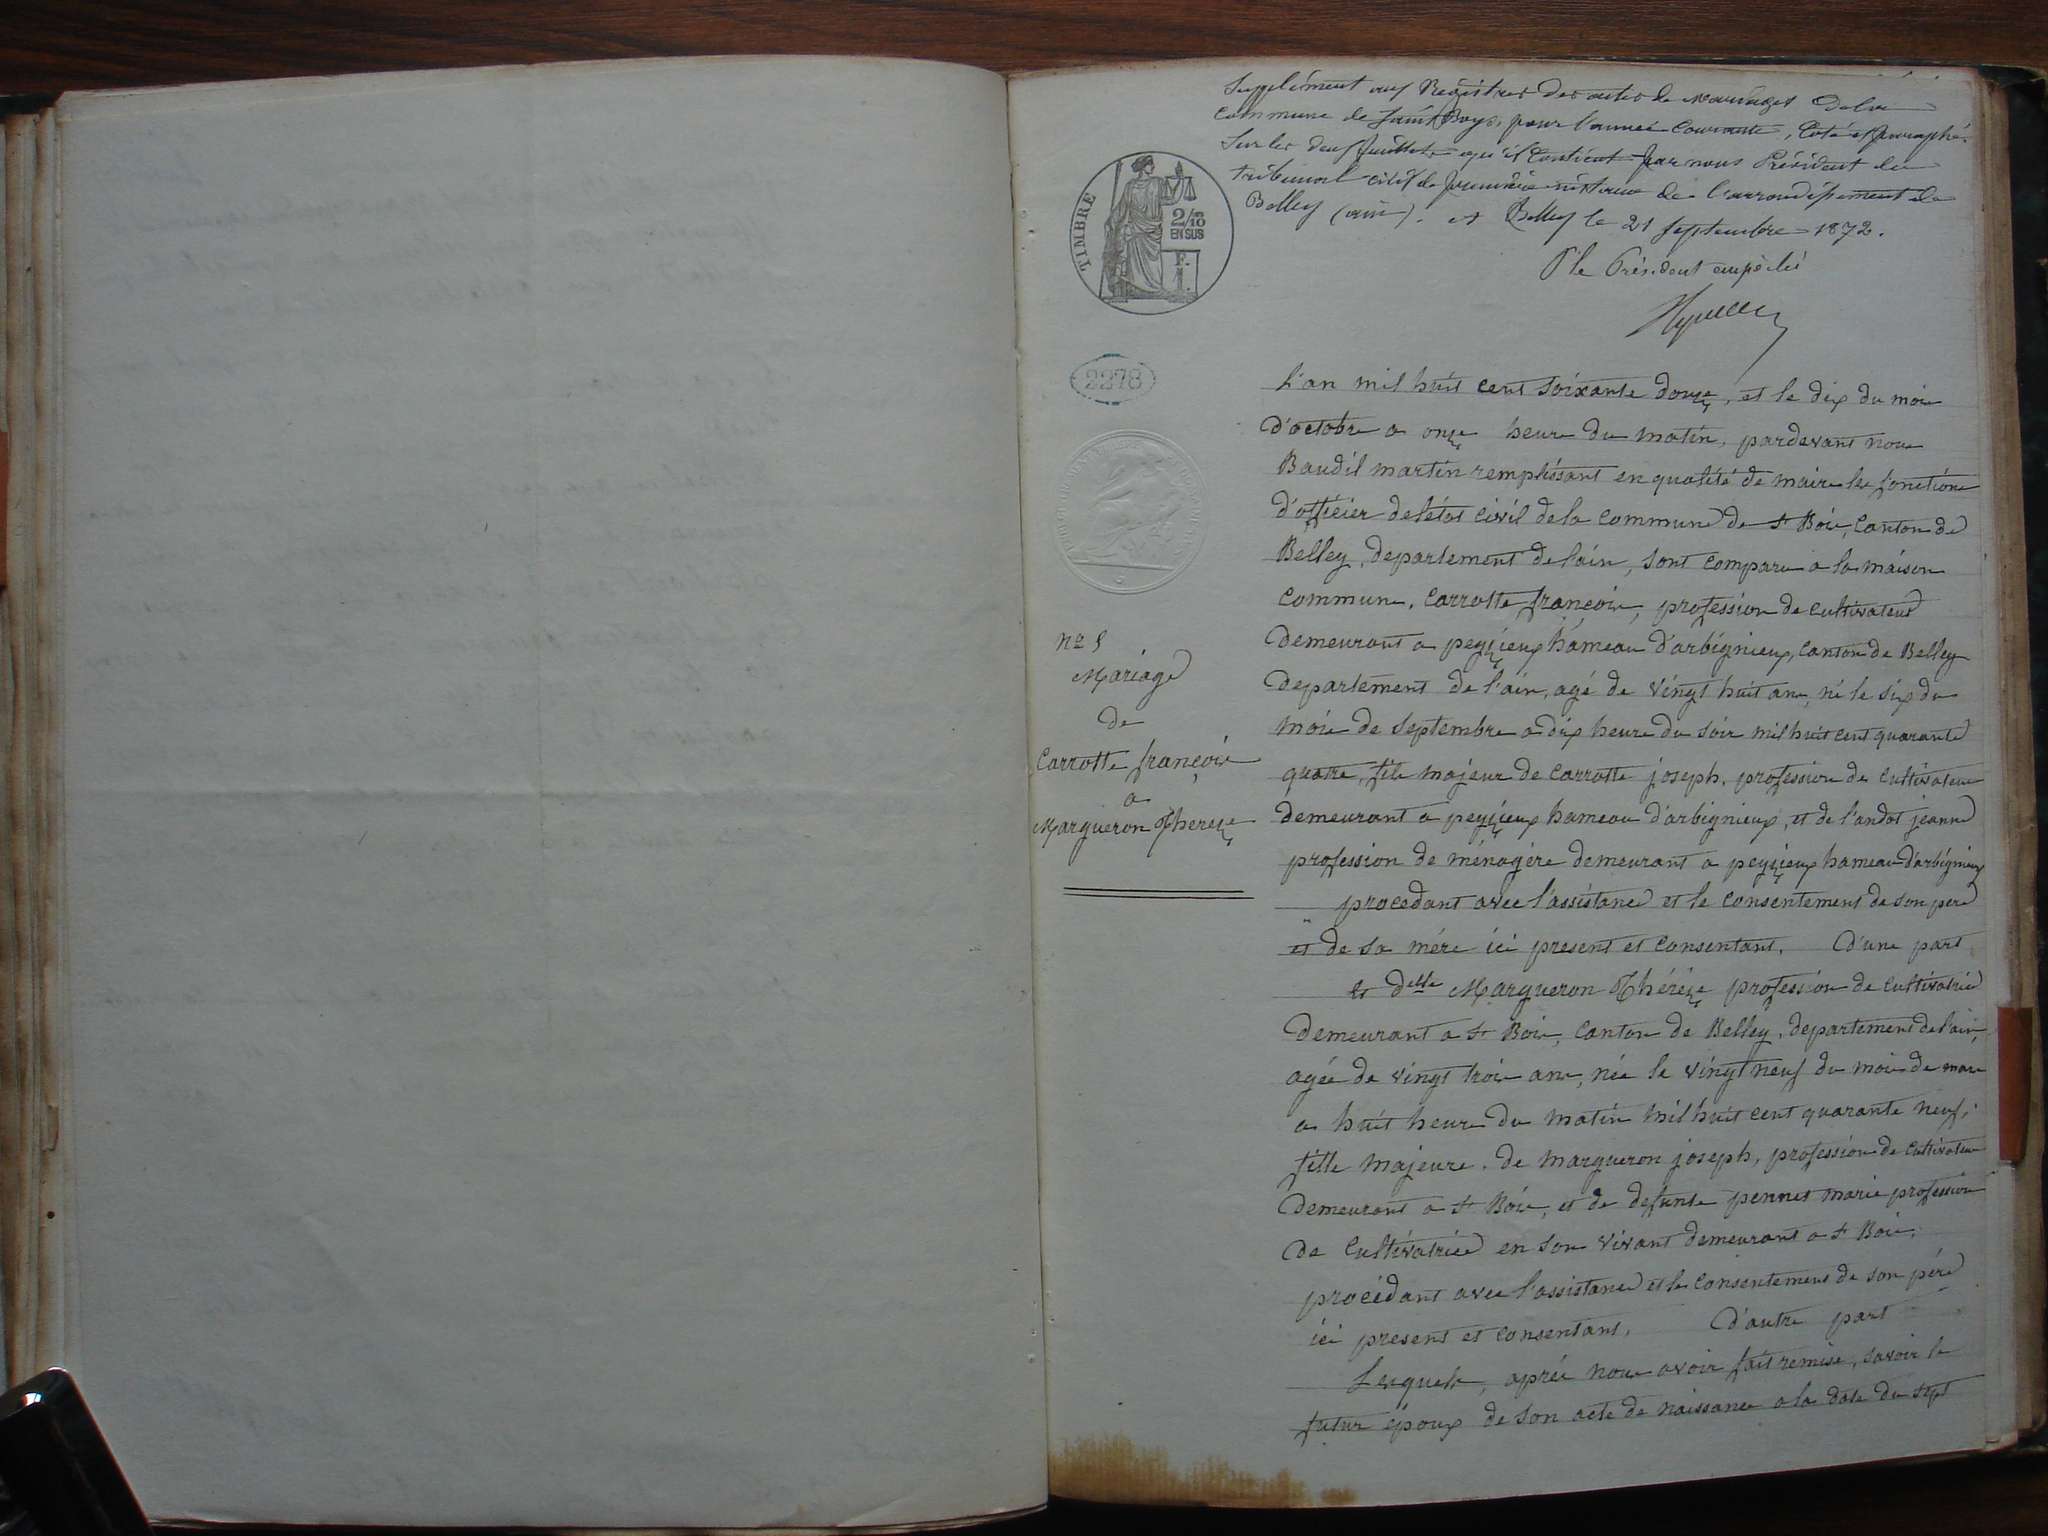 Supplément aux Registres des actes de mariages de la
Commune de Saint Boys, pour l'année Courante, Coté et parraphé
Sur les deux feuillets qu'il Contient par nous Président du
tribunal civil de première instance de l'arrondissement de
Belley (ain). à Belley le 21 Septembre 1872.
P. le Président empêché
TIMBRE
2/10
EN SUS
F.
1.
2278
L'an mil huit cent soixante douze, et le dix du mois
d'octobre a onze heure du matin, pardevant nous
Baudil martin remplissant en qualité de maire les fonctions
d'officier de l'état civil de la commune de St Bois, canton de
Belley, departement de l'ain, sont comparu a la maison
commune, Carrotte françois, profession de cultivateur
demeurant a peyzieux hameau d'arbignieux, canton de Belley
departement de l'ain, agé de vingt huit ans, né le six du
mois de septembre a dix heure du soir mil huit cent quarante
quatre, fils majeur de Carrotte joseph, profession de cultivateur
demeurant a peyzieux hameau d'arbignieux, et de Landot jeanne
profession de ménagère demeurant a peyzieux hameau d'arbignieux
procedant avec l'assistance et le consentement de son pere
et de sa mére ici present et consentant, D'une part
Et delle Margueron Théréze profession de cultivatrice
demeurant a St Bois, Canton de Belley, departement de l'ain,
agée de vingt trois ans, née le vingt neuf du mois de mars
a huit heure du matin mil huit cent quarante neuf,
fille majeure, de margueron joseph, profession de cultivateur
demeurant a St Bois, et de defunte pennet marie profession
de cultivatrice en son vivant demeurant a St Bois,
procédant avec l'assistance et le consentement de son pére
ici present et consentant, D'autre part
Lesquels, aprés nous avoir fait remise, savoir le
futur époux de son acte de naissance a la date du sept
No 5
Mariage
de
Carrotte françois
a
Margueron Thereze